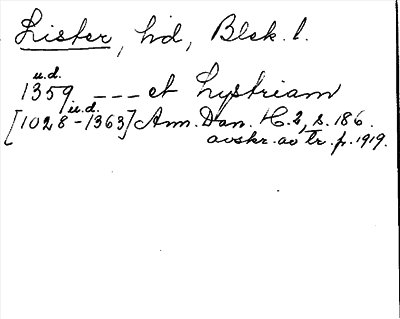 Lister, hd, Blek. l.
u.d.
1359 --- et Lystriam
u.d.
[1028-1363] Ann. Dan. H. 2, s. 186.
avskr. av tr. p. 1919.